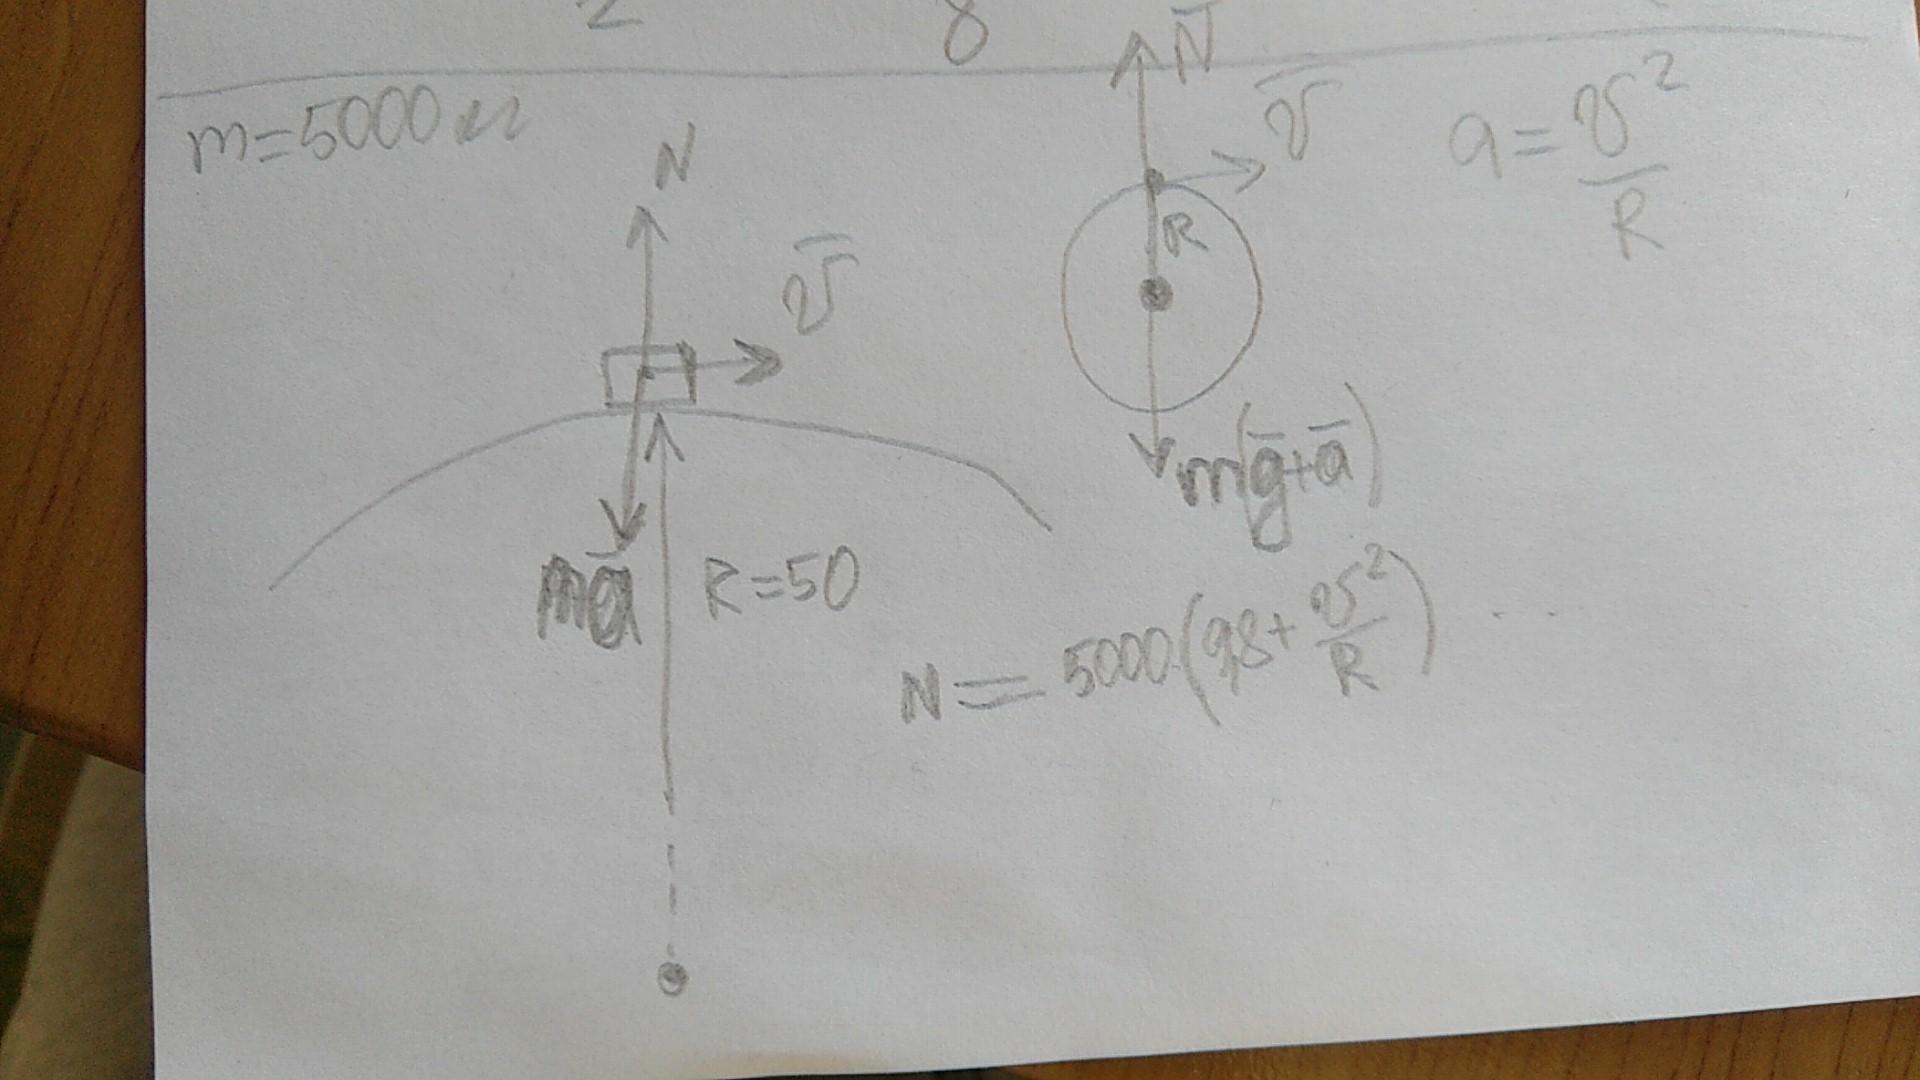 2 8
m=5000 кг
N
v̅
N̅
v̅
a = v²/R
R
m(g̅+a̅)
ma̅
R=50
N = 5000·(9,8+v²/R) ...